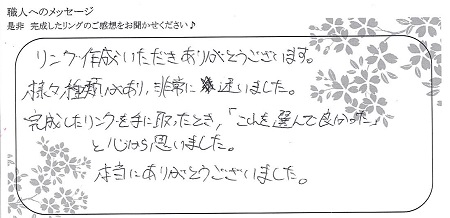 職人へのメッセージ
是非 完成したリングのご感想をお聞かせください♪
リング作成いただきありがとうございます。
様々種類があり、非常に迷いました。
完成したリングを手に取ったとき、「これを選んで良かった」
と心から思いました。
本当にありがとうございました。